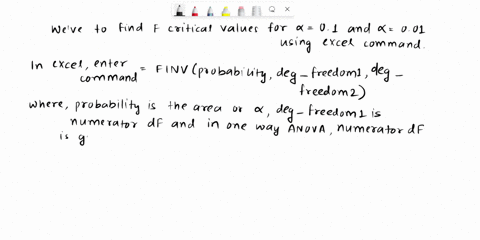 We've to find F critical values for α = 0.1 and α = 0.01
using excel command.
In excel, enter
command = FINV (probability, deg_freedom1, deg_
freedom2)
where, probability is the area or α, deg_freedom1 is
numerator dF and in one way ANOVA, numerator dF
is g